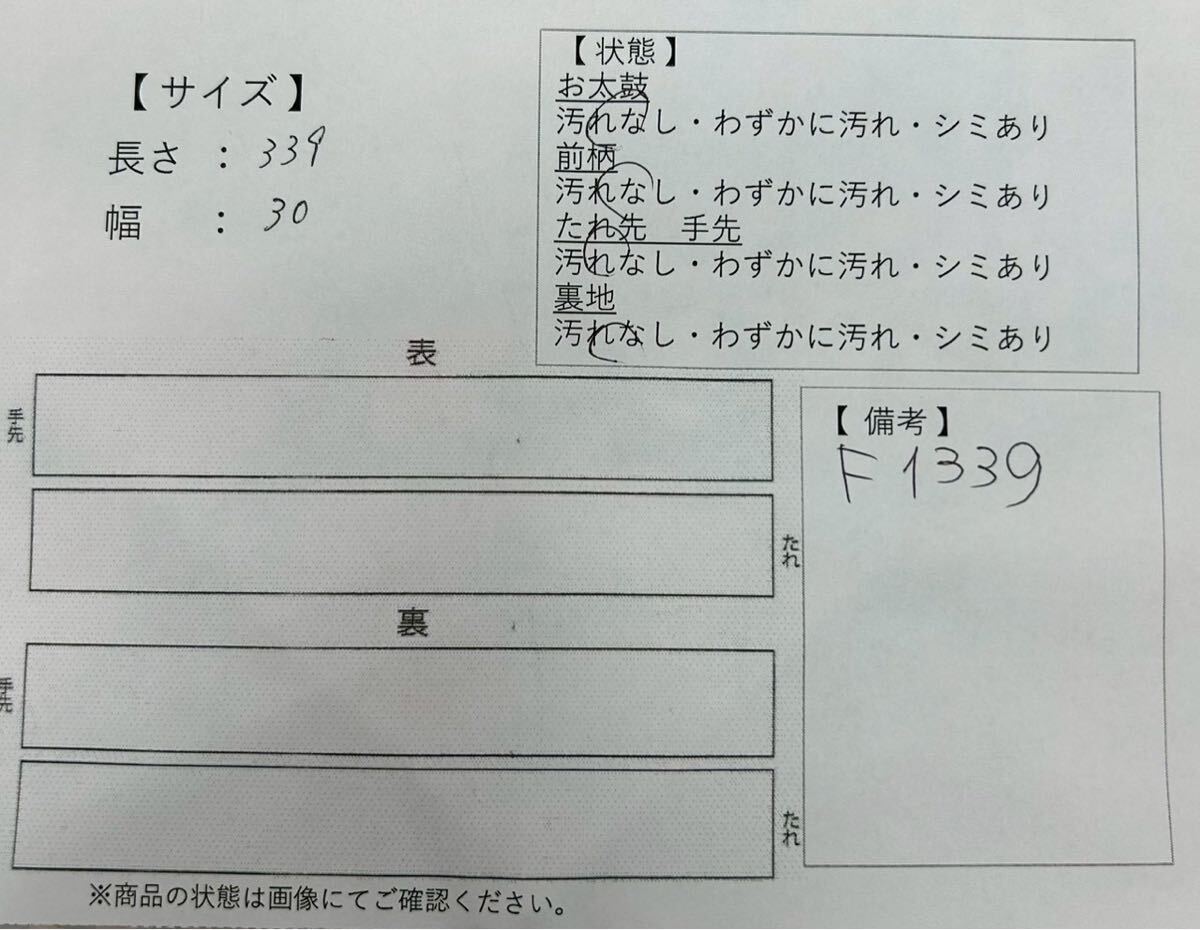 【サイズ】
長さ : 339
幅 : 30
【状態】
お太鼓
汚れなし・わずかに汚れ・シミあり
前柄
汚れなし・わずかに汚れ・シミあり
たれ先 手先
汚れなし・わずかに汚れ・シミあり
裏地
汚れなし・わずかに汚れ・シミあり
表
手先
たれ
裏
手先
たれ
【備考】
F1339
※商品の状態は画像にてご確認ください。